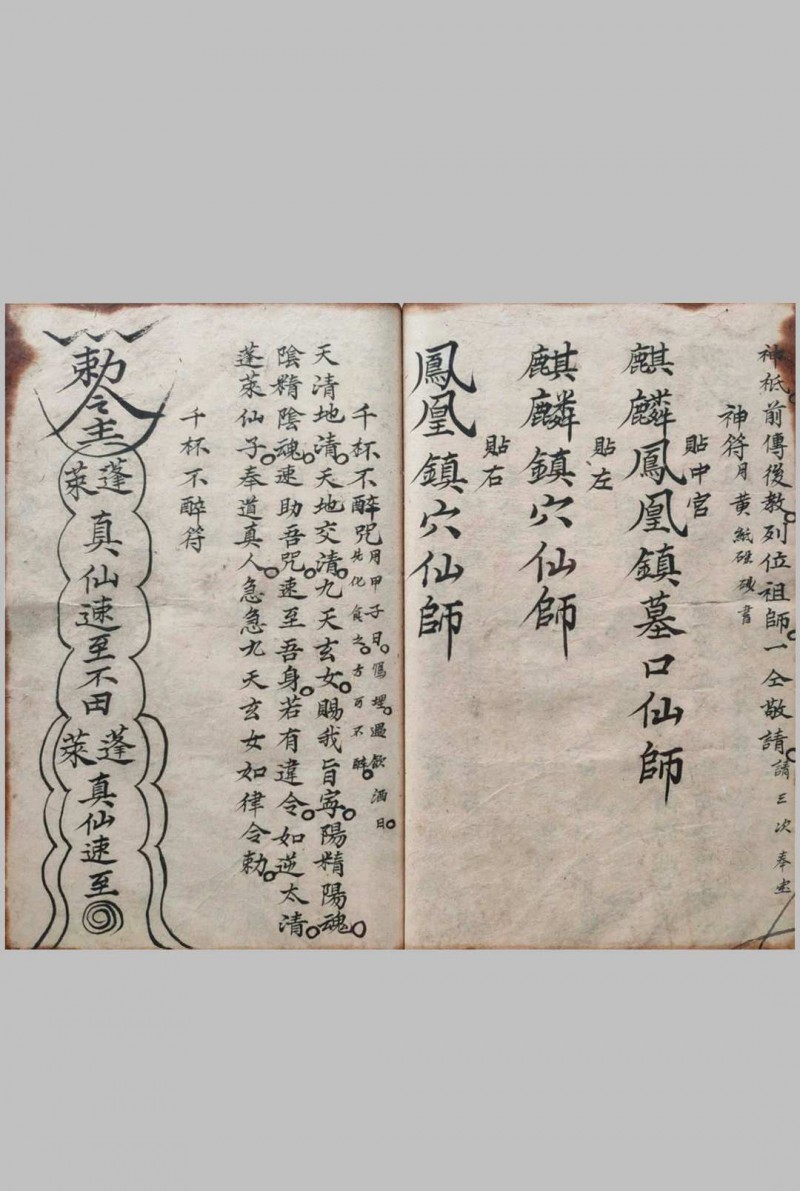 神祇前傳後教列位祖師一仝敬請請三次奉坐
神符用黃紙硃砂書
貼中宮
麒麟鳳凰鎮墓口仙師
貼左
麒麟鎮穴仙師
貼右
鳳凰鎮穴仙師
千杯不醉咒用甲子日
過飲酒日
先化食之方可不醉
天清地清天地交清九天玄女賜我旨寧陽精陽魂
陰精陰魂速助吾咒速至吾身若有違令如逆太清
蓬萊仙子奉道真人急急九天玄女如律令勅
千杯不醉符
勅令
蓬萊
真仙速至不田
蓬萊
真仙速至